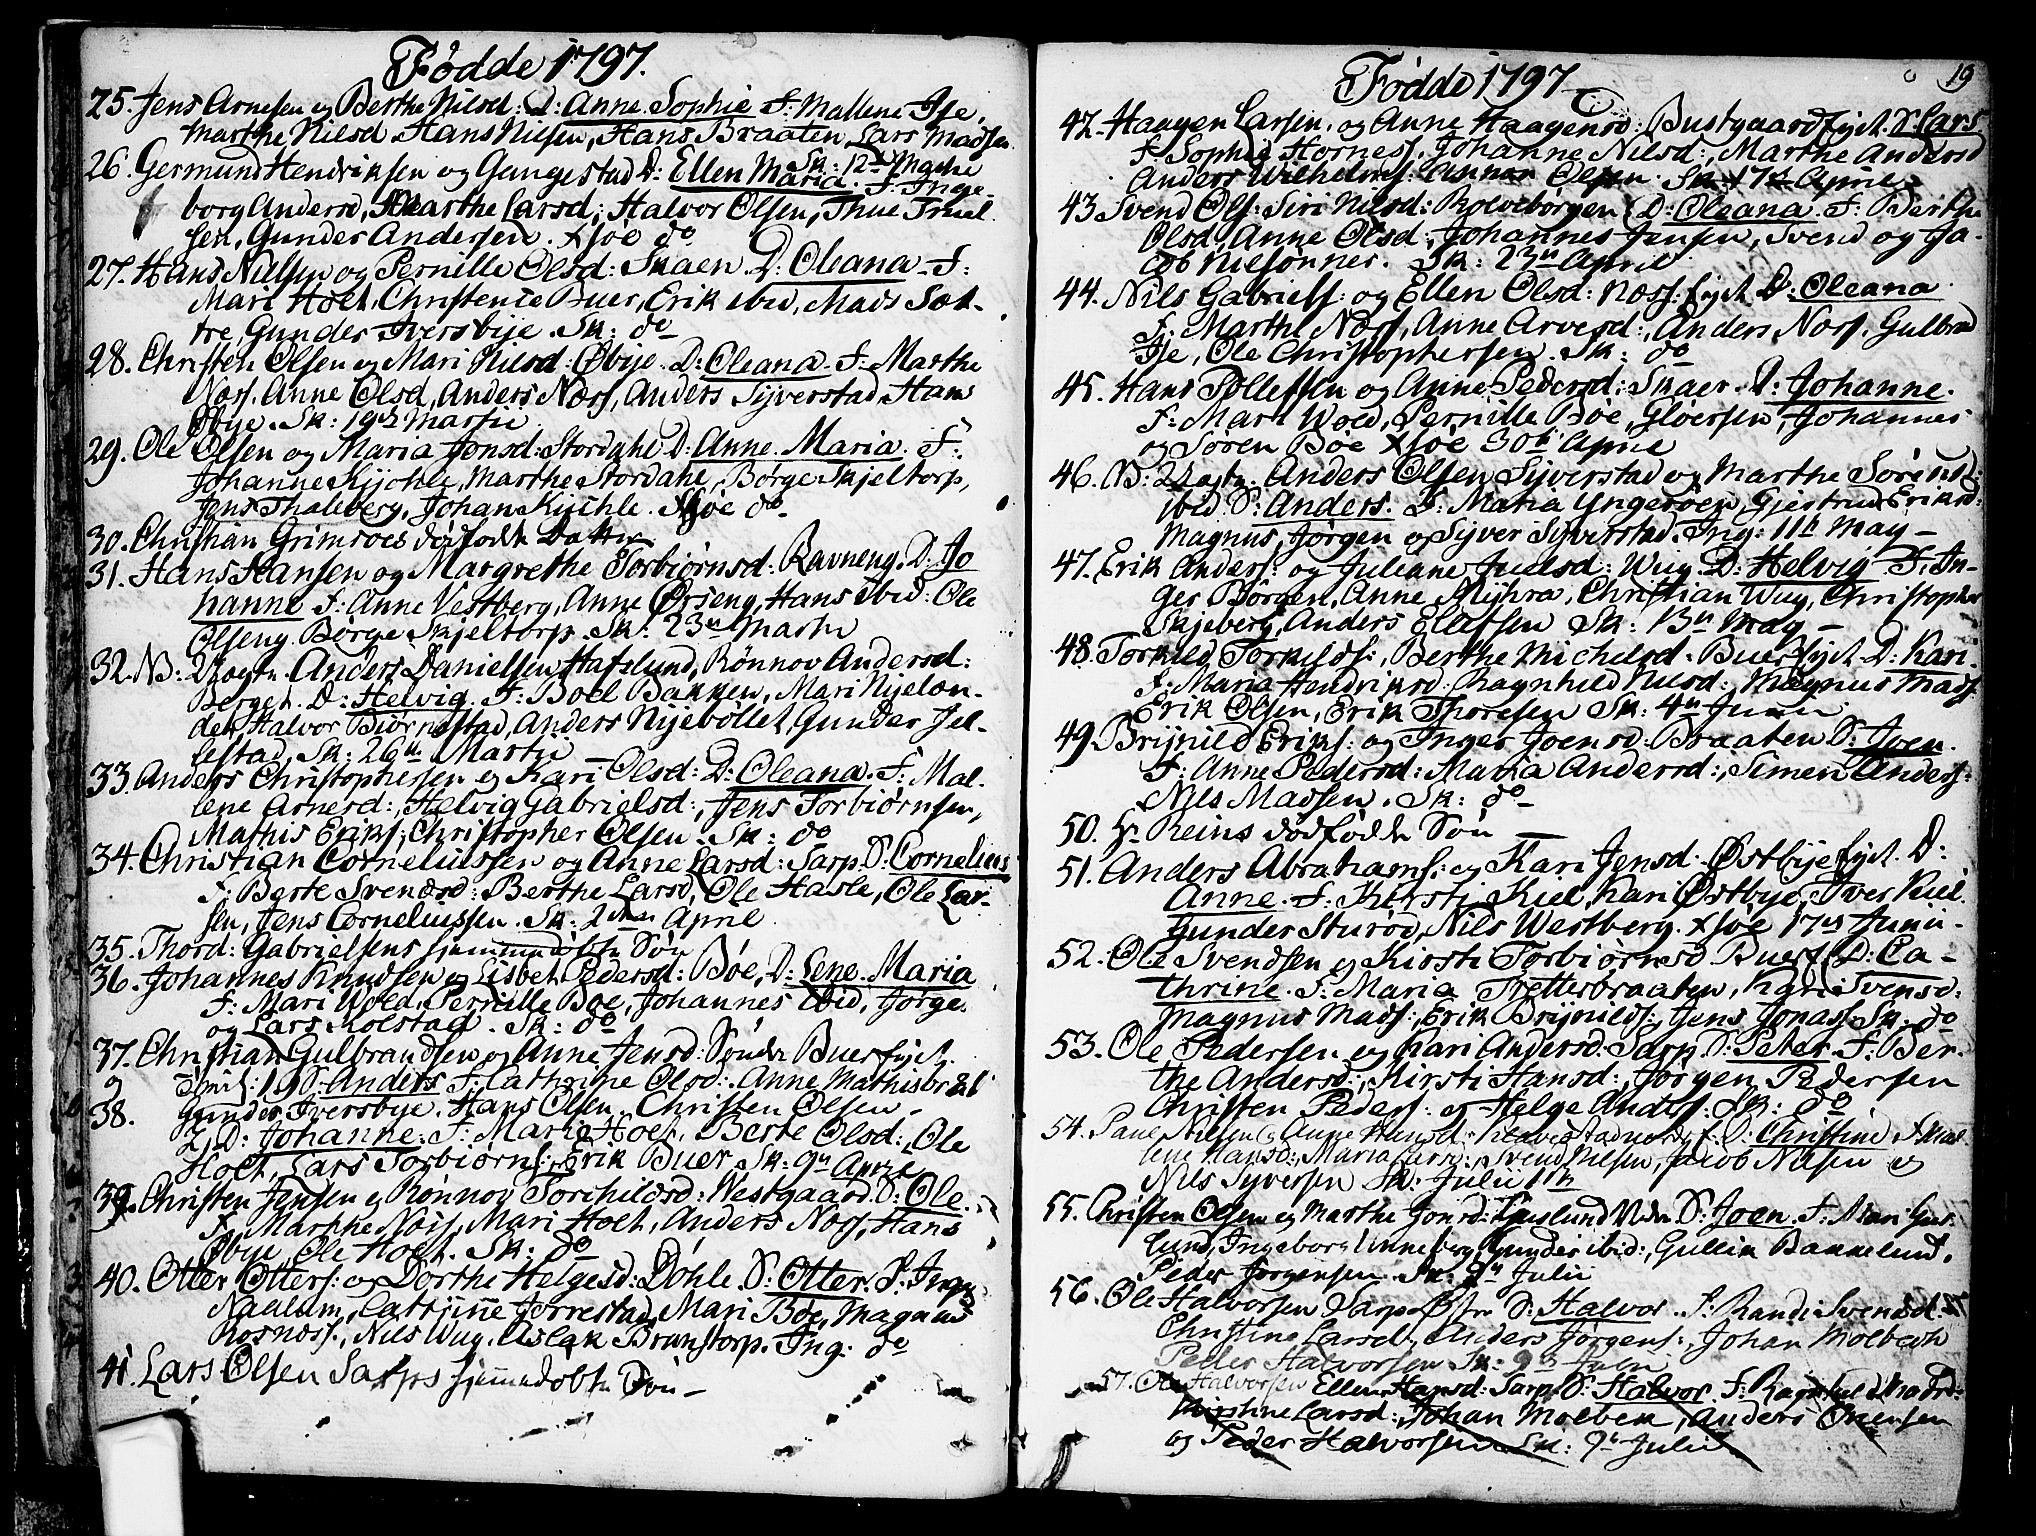 Fødde 1797.
25. Jens Arnesen og Berthe Nilsd: D: Anne Sophie F: Mallene Ise,
Marthe Nilsd, Hans Nilsen, Hans Braaten, Lars Madsen
Sk: 12te Martie
26. Germund Hendriksen og Gangestad D: Ellen Maria. F: Inge-
borg Andersd, Marthe Larsd; Halvor Olsen, Thue Truel-
sen, Gunder Andersen. Xsøe do
27. Hans Nielsen og Pernille Olsd: Skaen. D: Oleana. F:
Mari Holt, Christence Buer, Erik ibid, Mads Sæt-
tre, Gunder Iversbye. Sk: do
28. Christen Olsen og Mari Nilsd: Øbye. D: Oleana. F: Marthe
Næss, Anne Olsd, Anders Næss, Anders Syverstad, Hans
Øbye. Sk: 19de Martii
29. Ole Olsen og Maria Jonsd: Stordahl D: Anne Maria. F:
Johanne Kychle, Marthe Stordahl, Børge Skjeltorp,
Jens Thaleberg, Johan Kychle. Xsjøe do
30. Christian Grimsøes dødfødte Datter
31. Hans Hansen og Margrethe Torbiørnsd: Ravneng. D: Jo
hanne F: Anne Vestberg, Anne Ørseng, Hans ibid: Ole
Olseng. Børge Skjeltorp. Sk: 23de Martii
32. NB: Uægte Anders Danielsen Hafslund, Rønnov Andersd:
Berget. D: Helvig. F: Boel Bakken, Mari Nyelæn-
det, Halvor Biørnestad, Anders Nyebøllet, Gunder Jel-
lestad, Sk: 26te Martii
33. Anders Christophersen og Kari Olsd: D: Oleana. F: Mal-
lene Arnesd:, Helvig Gabrielsd:, Jens Torbiørnsen,
Mathis Eriks:, Christopher Olsen. Sk: do
34. Christian Corneliussen og Anne Larsd: Sarp. S: Cornelius
F: Berte Svendsd: Berthe Larsd, Ole Hasle, Ole Lar-
sen, Jens Corneliussen. Sk: 2den April
35. Thord: Gabrielsens hjemmedøbte Søn
36. Johannes Knudsen og Lisbet Pedersd: Bøe, D: Lene Maria
F: Mari Wold, Pernille Boe, Johannes ibid, Jørge.
og Lars Kolstad. Sk: do
37. Christian Gulbrandsen og Anne Jensd: Søndre Buer
og Tvil: 1) S: Anders F: Cathrine Olsd:, Anne Mathisbræk
38. Gunder Iversbye. Hans Olsen, Christen Olsen
2) D: Johanne. F: Marie Holt, Berte Olsd:, Ole
Holt, Lars Torbiørns:, Erik Buer Sk: 9de April
39. Christen Jensen og Rønnov Torchildsd: Westgaard. S: Ole.
F: Marthe Næss, Mari Holt, Anders Næss, Hans
Øbye, Ole Holt. Sk: do
40. Otter Otters: og Dorthe Helgesd: Døhle. S: Otter. F: Inge
Naalum, Catrine Jorrestad, Mari Boe, Magnus
Rosness, Nils Wug, Aslak Branstorp. Ing: do
41. Lars Olsen Sarps hjemmedøbte Søn
Fødde 1797
19
42. Haagen Larsen, og Anne Haagensd: Bustgaard S: Lars
F: Sophie Hornes, Johanne Nilsd:, Marthe Andersd
Anders Wilhelms: Annan Olsen. Sk: 17de April
43. Svend Ols: Siri Nilsd: Rolvsbørgen D: Oleana. F: Berthe
Olsd, Anne Olsd:, Johannes Jensen, Svend og Ja-
cob Nilsønner. Sk: 23de April
44. Nils Gabriels: og Ellen Olsd: Næss D: Oleana.
F: Marthe Næss, Anne Arvesd:, Anders Næss, Gulbrand
Ise, Ole Christophersen. Sk: do
45. Hans Tollefsen og Anne Pedersd: Skaer. D: Johanne.
F: Mari Wold, Pernille Boe, Gloersen, Johannes
og Søren Bøe Xsøe 30te April
46. NB: Uægte. Anders Olsen Syverstad og Marthe Sørensd:
ibid S: Anders. F: Maria Yngerøen, Gjertrud Eriksd:
Magnus, Jørgen og Syver Syverstad. Ing: 11te May
47. Erik Anders: og Juliane Juelsd: Wug. D: Helvig. F: In-
ger Børgen, Anne Myhra, Christian Wug, Christopher
Skjeberg, Anders Elefsen Sk: 13de May
48. Torkild Torkilds:, Berthe Michelsd: Buer D: Kari
F: Maria Hendriksd: Ragnhild Nilsd: Magnus Mads:
Erik Olsen, Erik Thoresen Sk: 4de Junii
49. Brynild Eriks: og Inger Joensd: Braaten S: Joen.
F: Anne Pedersd: Maria Andersd:, Simen Anders:
Nils Madsen. Sk: do
50. Hr Reins dødfødte Søn
51. Anders Abrahams: og Kari Jensd: Østbye D:
Anne. F: Kirsti Kiel, Kari Østbye, Iver Kiel
Gunder Sturød, Nils Westberg. Xsøe 17de Junii
52. Ole Svendsen og Kirsti Torbiørnsd Buer D: Ca-
thrine. F: Maria Trætterbraaten, Kari Svensd:
Magnus Mads:, Erik Brynilds:, Jens Jonas: Sk: do
53. Ole Pedersen og Kari Andersd: Sarp S: Peter F: Ber-
the Andersd:, Kirsti Hansd:, Jørgen Pedersen
Christen Peders: og Helge Anders: Sk: do
54. Paul Nilsen og Anne Hansd: D: Christine F: Mal
lene Hansd:, Maria Larsd:, Svend Nilsen, Jacob Nilsen og
Nils Syversen Sk: Julii 1te
55. Christen Olsen og Marthe Jonsd: S: Joen. F: Mari
lund, Ingeborg Unneberg, Gunder ibid:, Gullik Bakkelund,
Peder Jørgensen. Sk: 9de Julii
56. Ole Halvorsen Varp Østre S: Halvor. F: Randi Svensd:
Christine Larsd:, Anders Jørgens:, Johan Molbech
Peder Halvorsen Sk: 9de Julii
57. Ole Halvorsen Ellen Hansd: Sarp S: Halvor. F: Ragnhild
Kirstine Larsd: Johan Molbek, Anders
og Peder Halvorsen Sk: 9de Julii